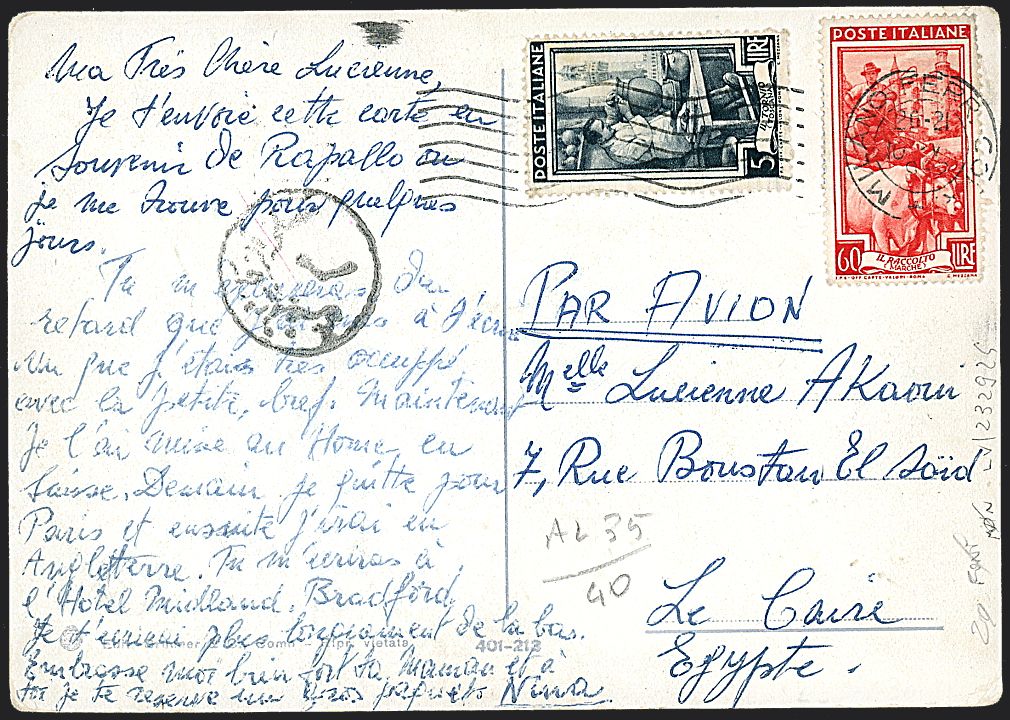 Ma Très Chère Lucienne,
Je t'envoie cette carte en
souvenir de Rapallo ou
je me trouve pour quelques
jours.
Tu m'excuseras du
retard que j'ai mis à t'écrire
vu que j'étais très occuppé
avec la petite, bref. Maintenant
Je l'ai mise au Home en
Suisse. Demain je quitte pour
Paris et ensuite j'irai en
Angleterre. Tu m'écriras à
l'Hotel Midland. Bradford
Je t'écrirai plus longuement de la bas.
Embrasse moi bien fort ta Maman et à
toi je te reserve un gros paquet. Nina
401-213
POSTE ITALIANE
5 LIRE
POSTE ITALIANE
60 LIRE
IL RACCOLTO
(MARCHE)
MILANO FERR
PAR AVION
Melle Lucienne AKaoui
7, Rue Boustan El Saïd
AL 35
40
Le Caire
Egypte.